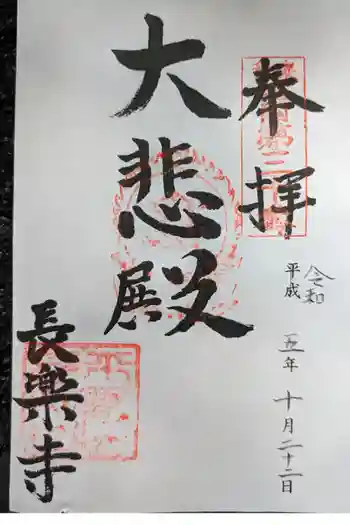 奉拝
令和
平成
五年 十月二十二日
大悲殿
長樂寺